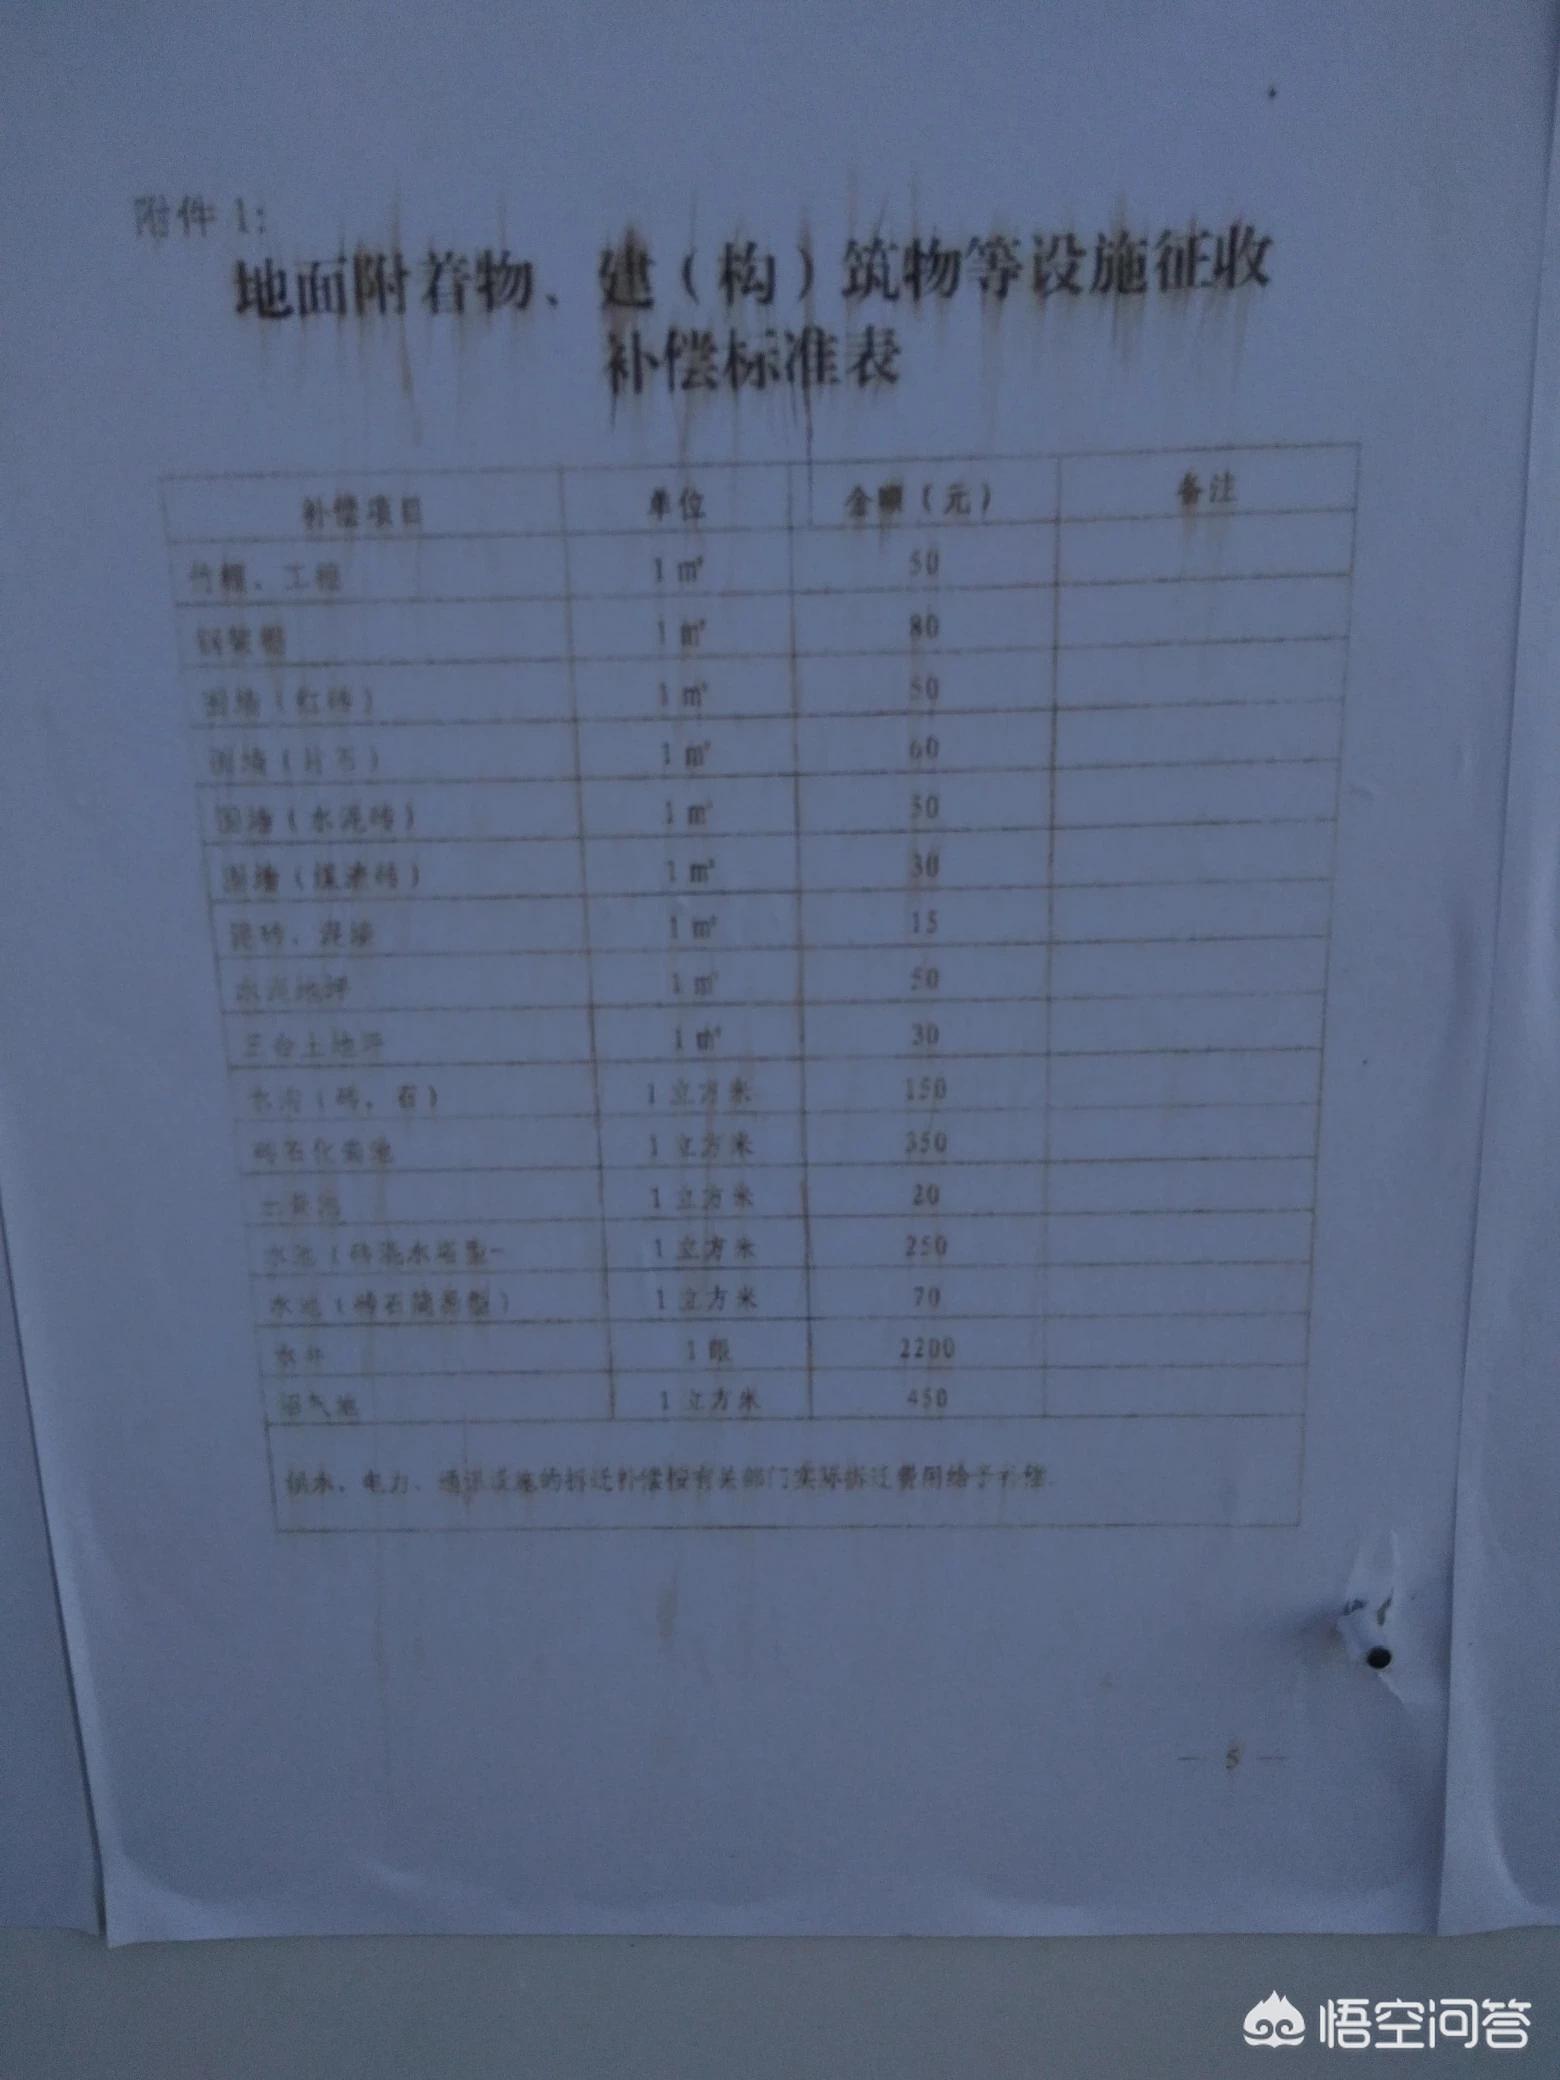 附件1:
地面附着物、建(构)筑物等设施征收
补偿标准表
补偿项目 单位 金额(元) 备注
竹棚、工棚 1㎡ 50
钢架棚 1㎡ 80
围墙(红砖) 1㎡ 50
围墙(片石) 1㎡ 60
围墙(水泥砖) 1㎡ 50
围墙(煤渣砖) 1㎡ 30
泥砖、泥墙 1㎡ 15
水泥地坪 1㎡ 50
三合土地坪 1㎡ 30
水沟(砖、石) 1立方米 150
砖石化粪池 1立方米 350
土粪池 1立方米 20
水池(砖混水塔型- 1立方米 250
水池(砖石简易型) 1立方米 70
水井 1眼 2200
沼气池 1立方米 450
供水、电力、通讯设施的拆迁补偿按有关部门实际拆迁费用给予补偿.
— 5 —
悟空问答